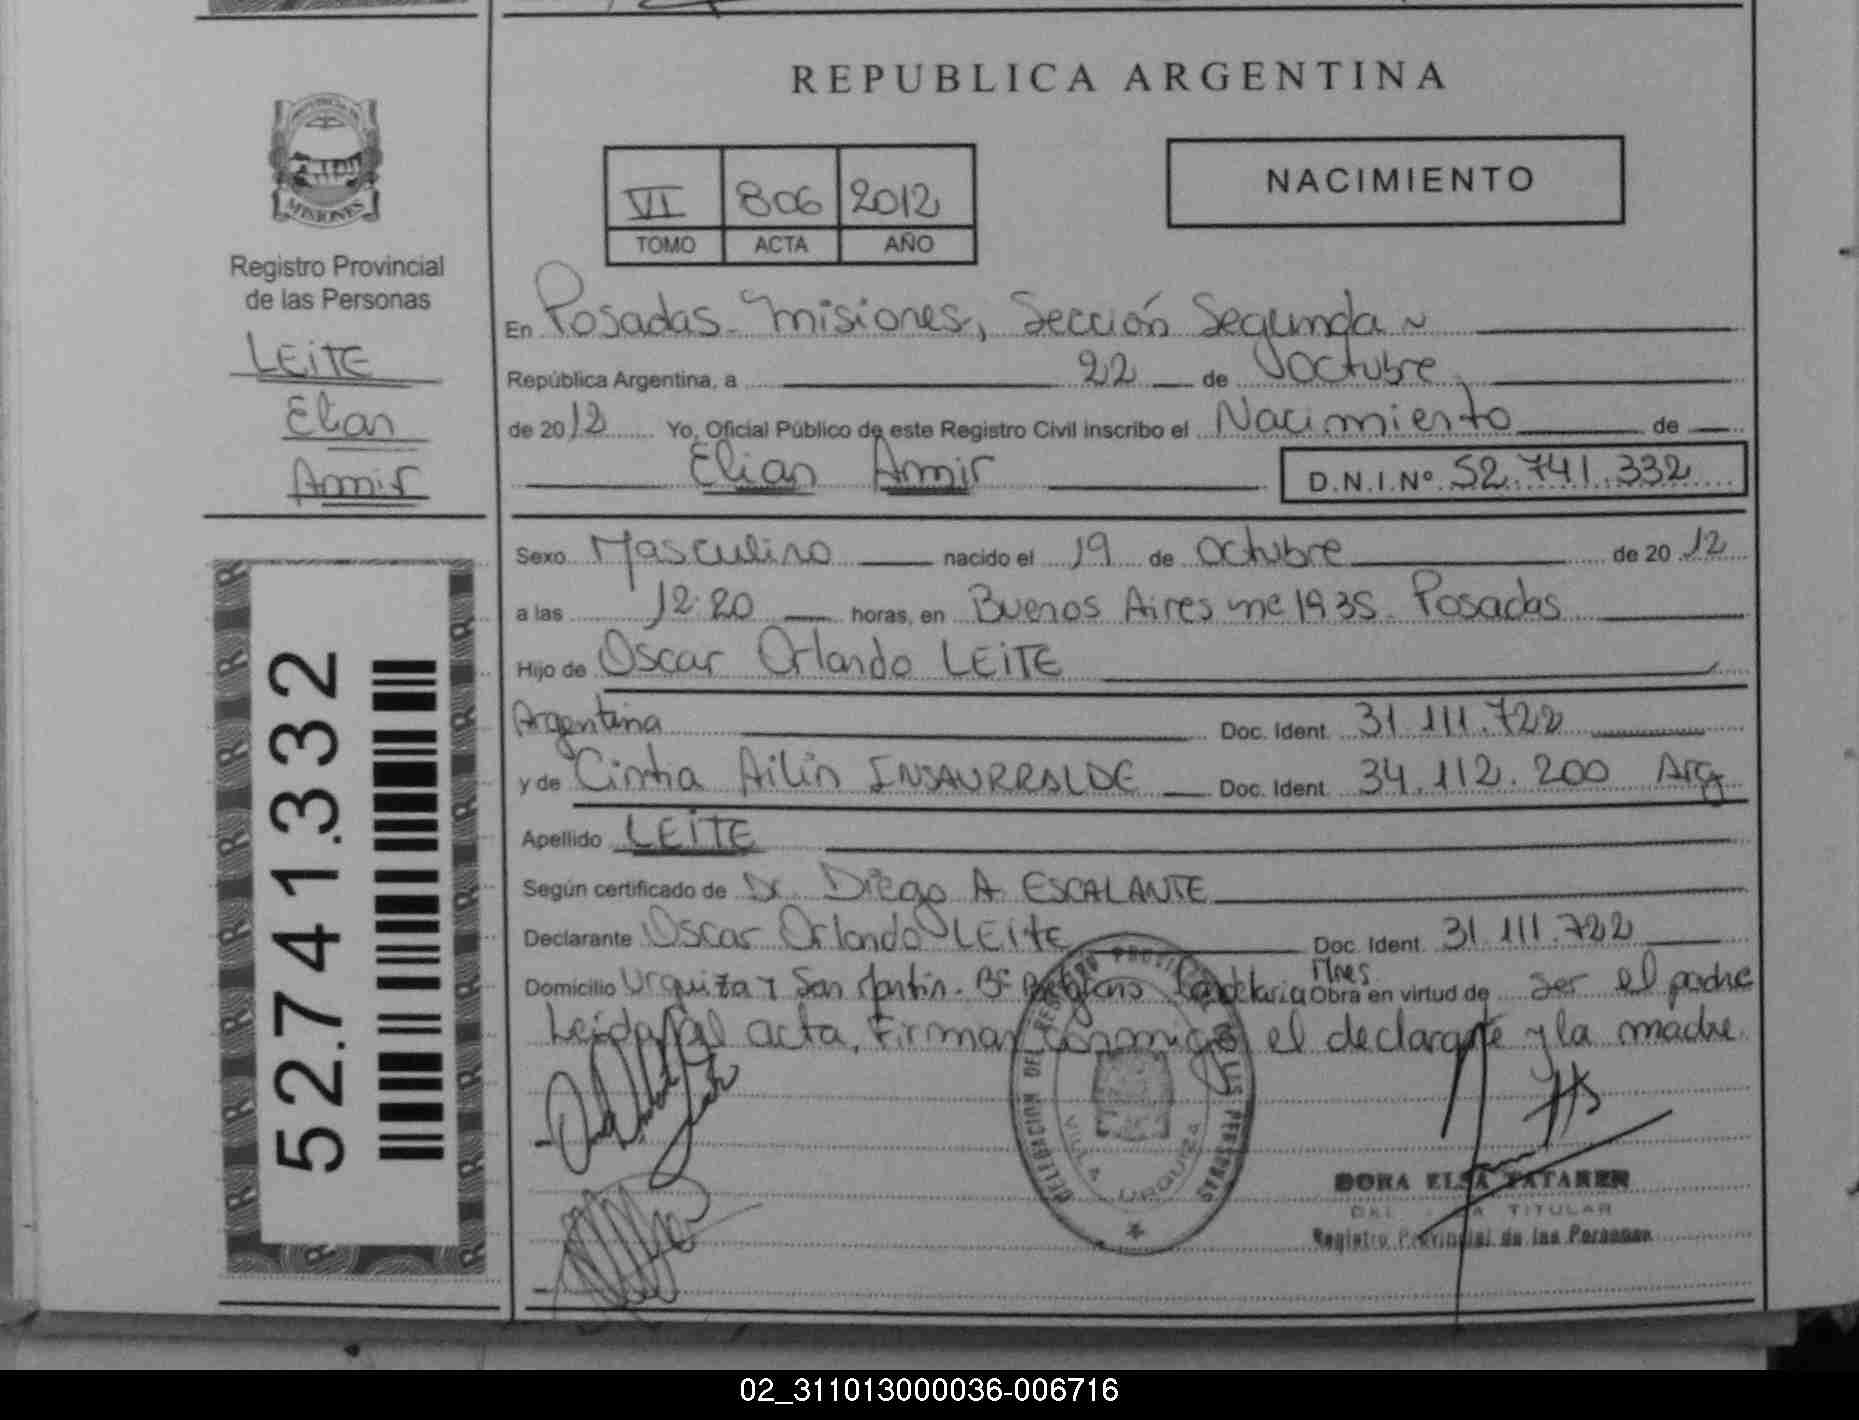 REPUBLICA ARGENTINA
PROVINCIA DE
MISIONES
Registro Provincial
de las Personas
LEITE
Elian
Amir
52.741.332
VI 806 2012
TOMO ACTA AÑO
NACIMIENTO
En Posadas - Misiones, Sección Segunda
República Argentina, a 22 de Octubre
de 2012 Yo, Oficial Público de este Registro Civil inscribo el Nacimiento de
Elian Amir D.N.I.Nº 52.741.332
Sexo Masculino nacido el 19 de Octubre de 2012
a las 12:20 horas, en Buenos Aires 1935 - Posadas
Hijo de Oscar Orlando LEITE
Argentina Doc. Ident. 31.111.722
y de Cintia Ailin INSAURRALDE Doc. Ident. 34.112.200 Arg
Apellido LEITE
Según certificado de Dr. Diego A. ESCALANTE
Declarante Oscar Orlando LEITE Doc. Ident. 31.111.722
Domicilio Urquiza y San Martín - Bº Belgrano Candelaria Mnes Obra en virtud de ser el padre
Leida el acta, Firman conmigo el declarante y la madre.
DELEGACION DEL REGISTRO PROVINCIAL DE LAS PERSONAS
VILLA URQUIZA
DORA ELSA
TITULAR
Registro Provincial de las Personas
02_311013000036-006716